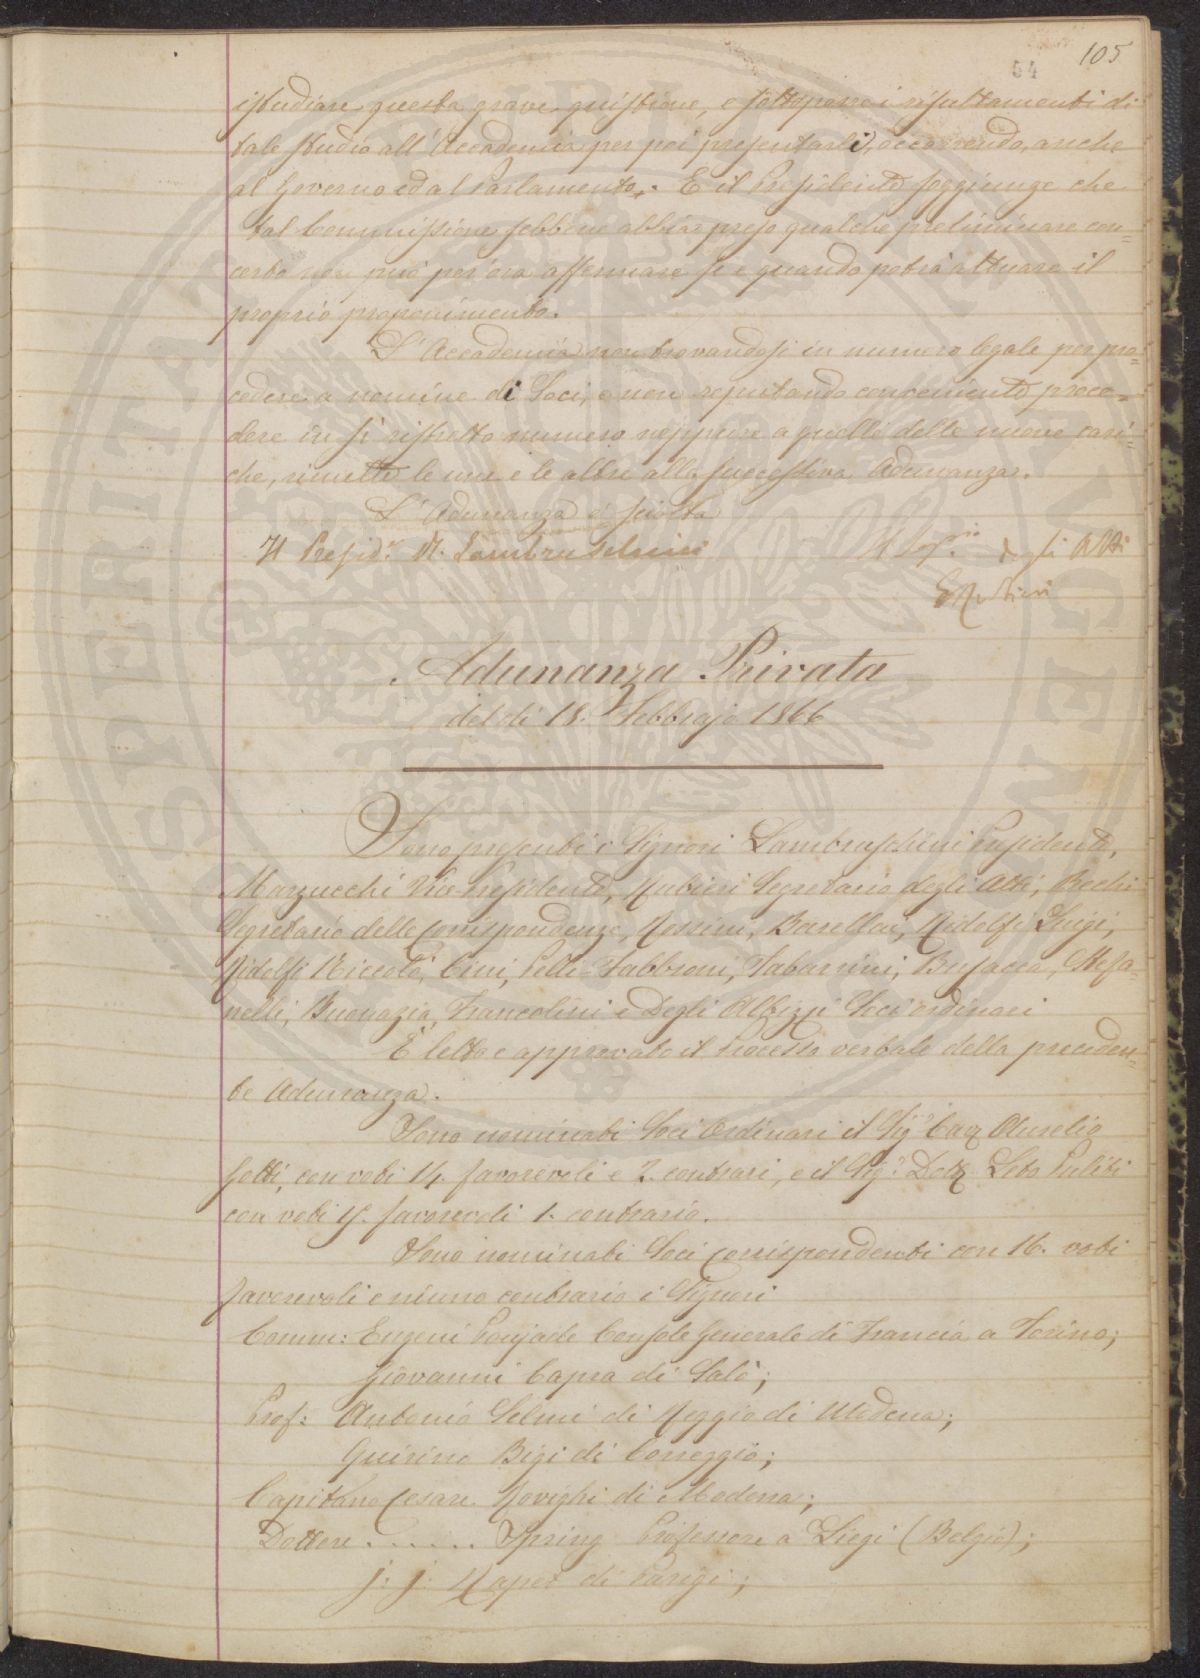 105
54
istudiare questa grave quistione, e sottoporre i resultamenti di
tale studio all'Accademia per poi presentarli, occorrendo, anche
al Governo ed al Parlamento. E il Presidente soggiunge che
tal Commissione sebbene abbia preso qualche preliminare con=
certo non può per ora affermare se e quando potrà attuare il
proprio proponimento.
L'Accademia non trovandosi in numero legale per pro=
cedere a nomine di Soci, e non reputando conveniente proce=
dere in sì ristretto numero neppure a quelle delle nuove cari=
che, rimette le une e le altre alla successiva Adunanza.
L'Adunanza è sciolta
Il Presid.e R. Lambruschini Il Seg.rio degli Atti
E Rubieri
Adunanza Privata
del dì 18. Febbrajo 1866
Sono presenti i Signori Lambruschini Presidente,
Marzucchi Vice-Presidente, Rubieri Segretario degli Atti, Bechi
Segretario delle Corrispondenze, Rossini, Barellai, Ridolfi Luigi,
Ridolfi Niccolò, Cini, Pelli-Fabbroni, Tabarrini, Busacca, Stefa=
nelli, Buonazia, Francolini e Degli Albizzi Soci ordinari
È letto e approvato il Processo verbale della preceden=
te Adunanza.
Sono nominati Soci Ordinari il Sig.r Cav. Aurelio
Gotti, con voti 14. favorevoli e 2. contrari, e il Sig.r Dott. Leto Puliti
con voti 15. favorevoli 1. contrario.
Sono nominati Soci Corrispondenti con 16. voti
favorevoli e niuno contrario i Signori
Comm: Eugeni Poujade Console Generale di Francia a Torino;
Giovanni Capra di Salò;
Prof: Antonio Selmi di Reggio di Modena;
Quirino Bigi di Correggio;
Capitano Cesare Rovighi di Modena;
Dottore . . . . . . Spring Professore a Liegi (Belgio);
J: J: Rapet di Parigi;